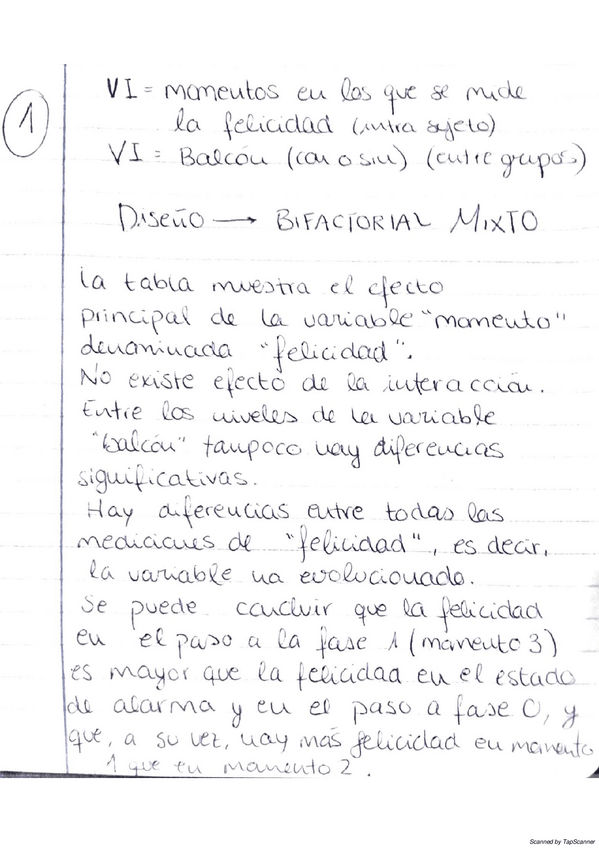 1
VI = momentos en los que se mide
la felicidad (intra sujeto)
VI = Balcón (con o sin) (entre grupos)
Diseño → BIFACTORIAL MIXTO
la tabla muestra el efecto
principal de la variable "momento"
denominada "felicidad".
No existe efecto de la interacción.
Entre los niveles de la variable
"balcón" tampoco hay diferencias
significativas.
Hay diferencias entre todas las
mediciones de "felicidad", es decir,
la variable ha evolucionado.
Se puede concluir que la felicidad
en el paso a la fase 1 (momento 3)
es mayor que la felicidad en el estado
de alarma y en el paso a fase 0, y
que, a su vez, hay más felicidad en momento
1 que en momento 2.
Scanned by TapScanner